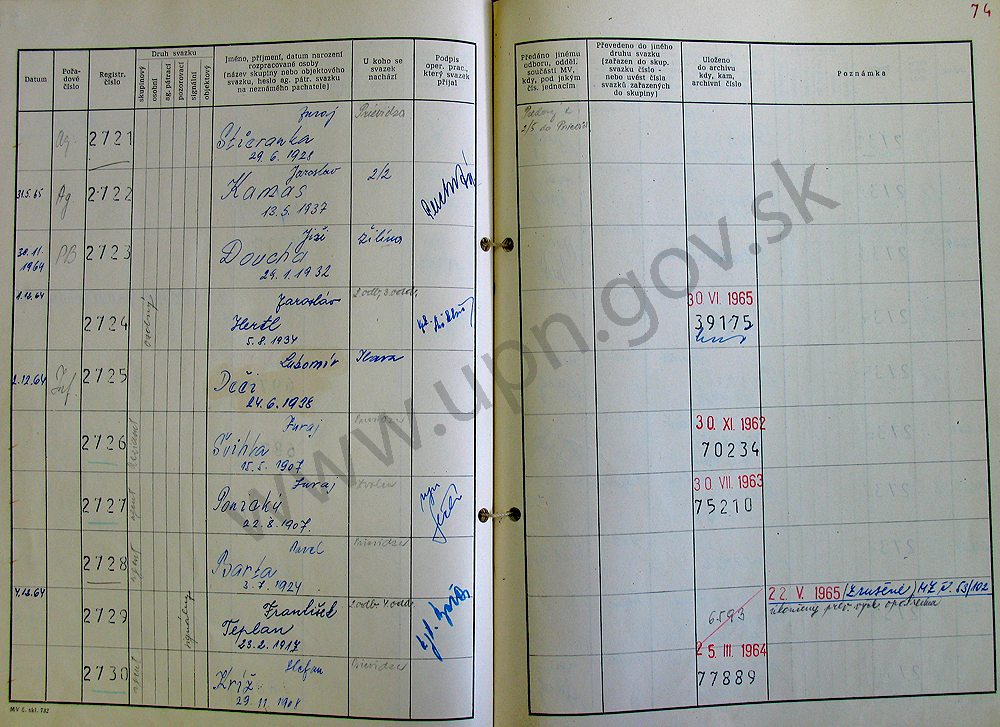 74
Datum
Pořadové číslo
Registr. číslo
Druh svazku
skupinový
osobní
ag. pátrací
pozorovací
signální
objektový
Jméno, příjmení, datum narození
rozpracované osoby
(název skupiny nebo objektového
svazku, heslo ag. pátr. svazku
na neznámého pachatele)
U koho se
svazek
nachází
Podpis
oper. prac.,
který svazek
přijal
Předáno jinému
odboru, odděl.
součásti MV,
kdy, pod jakým
čís. jednacím
Převedeno do jiného
druhu svazku
(zařazen do skup.
svazku číslo -
nebo uvést čísla
svazků zařazených
do skupiny)
Uloženo
do archivu
kdy, kam,
archivní číslo
Poznámka
Ag. 2721 Juraj Prievidza
29. 6. 1928
2/5 do
31.5.65 Ag 2722 Jaroslav 2/2
Kamas
13. 5. 1937
30.11. 1964 2723 Jiří Žilina
Doucha
24. 1. 1932
1.12.64 2724 osobný Jaroslav 2.odb. 3.odd.
Hertl
5. 8. 1934
30 VI. 1965
39175
2.12.64 2725 Ľubomír Ilava
Deči
24. 6. 1938
2726 Juraj
Švihla
15. 5. 1907
30. XI. 1962
70234
2727 agent Juraj Zvolen
22. 8. 1907.
30 VII. 1963
75210
2728 agent Pavel Prievidza
Barta
3. 7. 1924
4.12.64 2729 signálny František 2.odb. 4.odd.
Teplan
23. 2. 1917
6593
22. V. 1965 (Zrušené)
2730 agent Štefan Prievidza
Kríž
29. 11. 1908
25. III. 1964
77889
MV č. skl. 782
www.upn.gov.sk